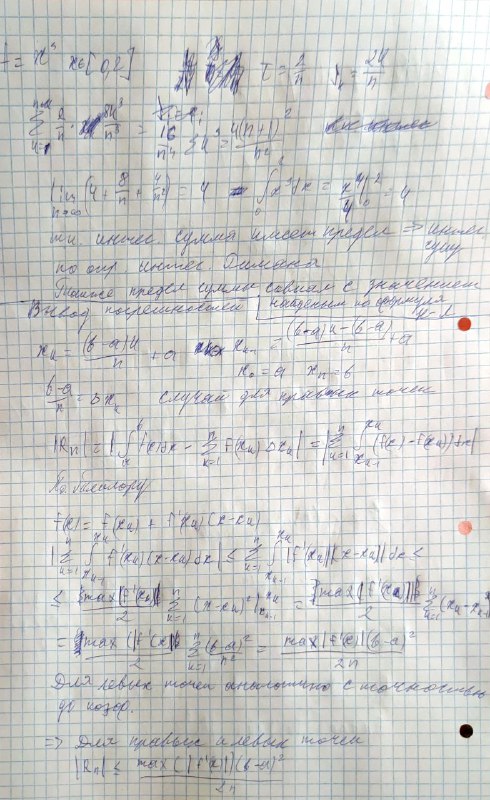 f = x³ x∈[0,2] τ = 2/n ξₖ = 2k/n
∑ 2/n · 8k³/n³ = 16/n⁴ ∑ k³ = 4(n+1)²/n²
lim n→∞ (4 + 8/n + 4/n²) = 4 ∫₀² x³dx = x⁴/4 |₀² = 4
интег. сумма имеет предел ⇒ интег
по опр. интег Римана
Также предел суммы совпал с значением
Вывод погрешностей найденым по формуле Н-Л
xₖ = (b-a)k/n + a xₖ₋₁ = ((b-a)k - (b-a))/n + a
x₀ = a xₙ = b
(b-a)/n = Δxₖ Случай для правых точек
|Rₙ| = |∫ₐᵇ f(x)dx - ∑ₖ₌₁ⁿ f(xₖ)Δxₖ| = |∑ₖ₌₁ⁿ ∫ₓₖ₋₁ˣᵏ (f(x) - f(xₖ))dx|
По Тейлору
f(x) = f(xₖ) + f'(xₖ)(x-xₖ)
|∑ₖ₌₁ⁿ ∫ₓₖ₋₁ˣᵏ f'(xₖ)(x-xₖ)dx| ≤ ∑ₖ₌₁ⁿ ∫ₓₖ₋₁ˣᵏ |f'(xₖ)||x-xₖ|dx ≤
≤ max|f'(xₖ)|/2 ∑ₖ₌₁ⁿ (x-xₖ)²|ₓₖ₋₁ˣᵏ = max|f'(xₖ)|/2 ∑ₖ₌₁ⁿ (xₖ-xₖ₋₁
= max(|f'(x)|)/2 ∑ₖ₌₁ⁿ (b-a)²/n² = max|f'(x)|(b-a)²/2n
Для левых точек аналогично с точностью
до
⇒ Для правых и левых точек
|Rₙ| ≤ max(|f'(x)|)(b-a)²/2n